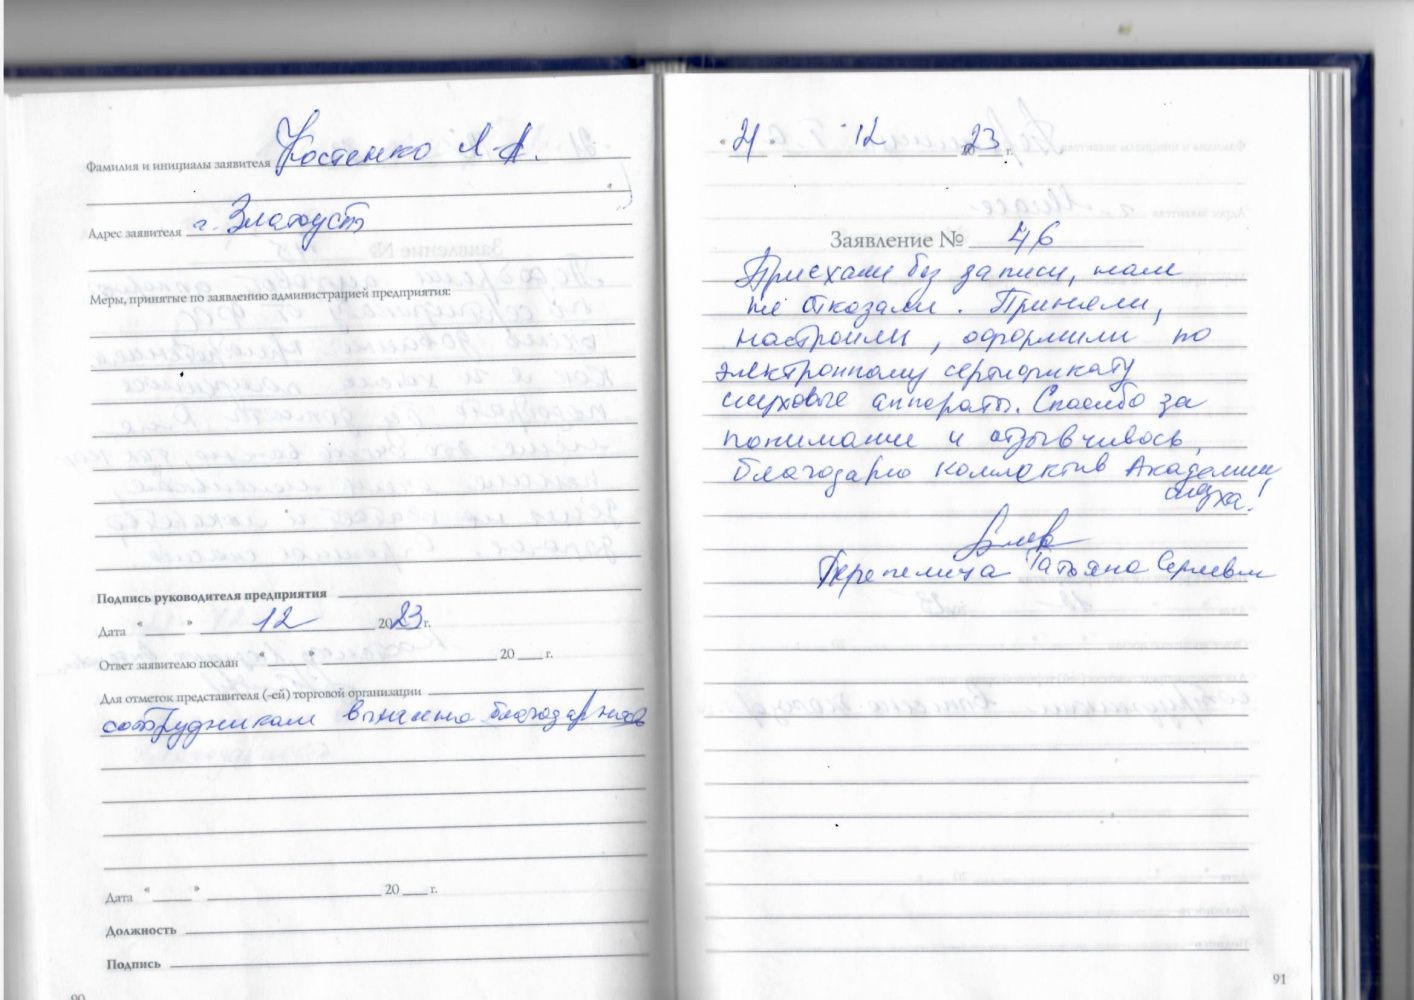 Фамилия и инициалы заявителя Костенко Л.А.
Адрес заявителя г. Златоуст
Меры, принятые по заявлению администрацией предприятия:
Подпись руководителя предприятия
Дата " " 12 2023 г.
Ответ заявителю послан " " 20 г.
Для отметок представителя (-ей) торговой организации
сотрудникам вынесена благодарность
Дата " " 20 г.
Должность
Подпись
90
21 12 2023 г.
Заявление № 46
Приехали без записи, нам
не отказали. Приняли,
настроили, оформили по
электронному сертификату
слуховые аппараты. Спасибо за
понимание и отзывчивость,
благодарю коллектив Академии
слуха!
Перепелица Татьяна Сергеевна
91